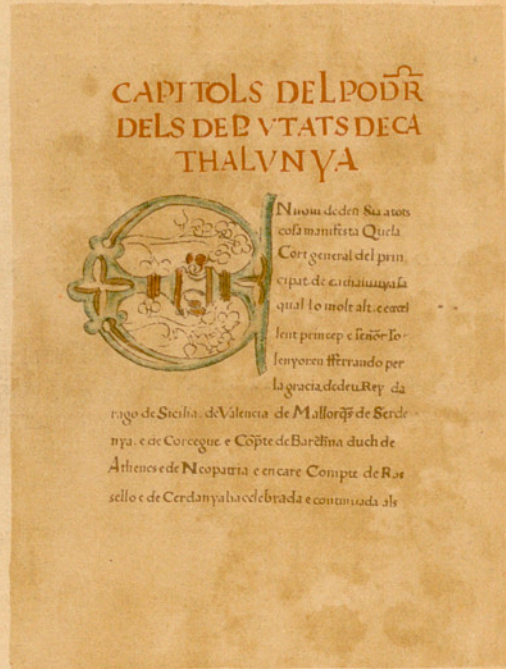 CAPITOLS DEL PODR̃
DELS DEPVTATS DE CA
THALVNYA
E
N nom de deu Sia a tots
cosa manifesta Que la
Cort general del prin
cipat de cathalunya la
qual lo molt alt. e excel
lent princep e senõr lo
senyor en fferrando per
la gracia. de deu Rey da
rago de Sicilia. de Valencia de Mallorq̃s de Serde
nya. e de Corcegue e Cõpte de Barc̃lina duch de
Athenes e de Neopatria e encare Compte de Ros
sello e de Cerdanya ha celebrada e continuada als